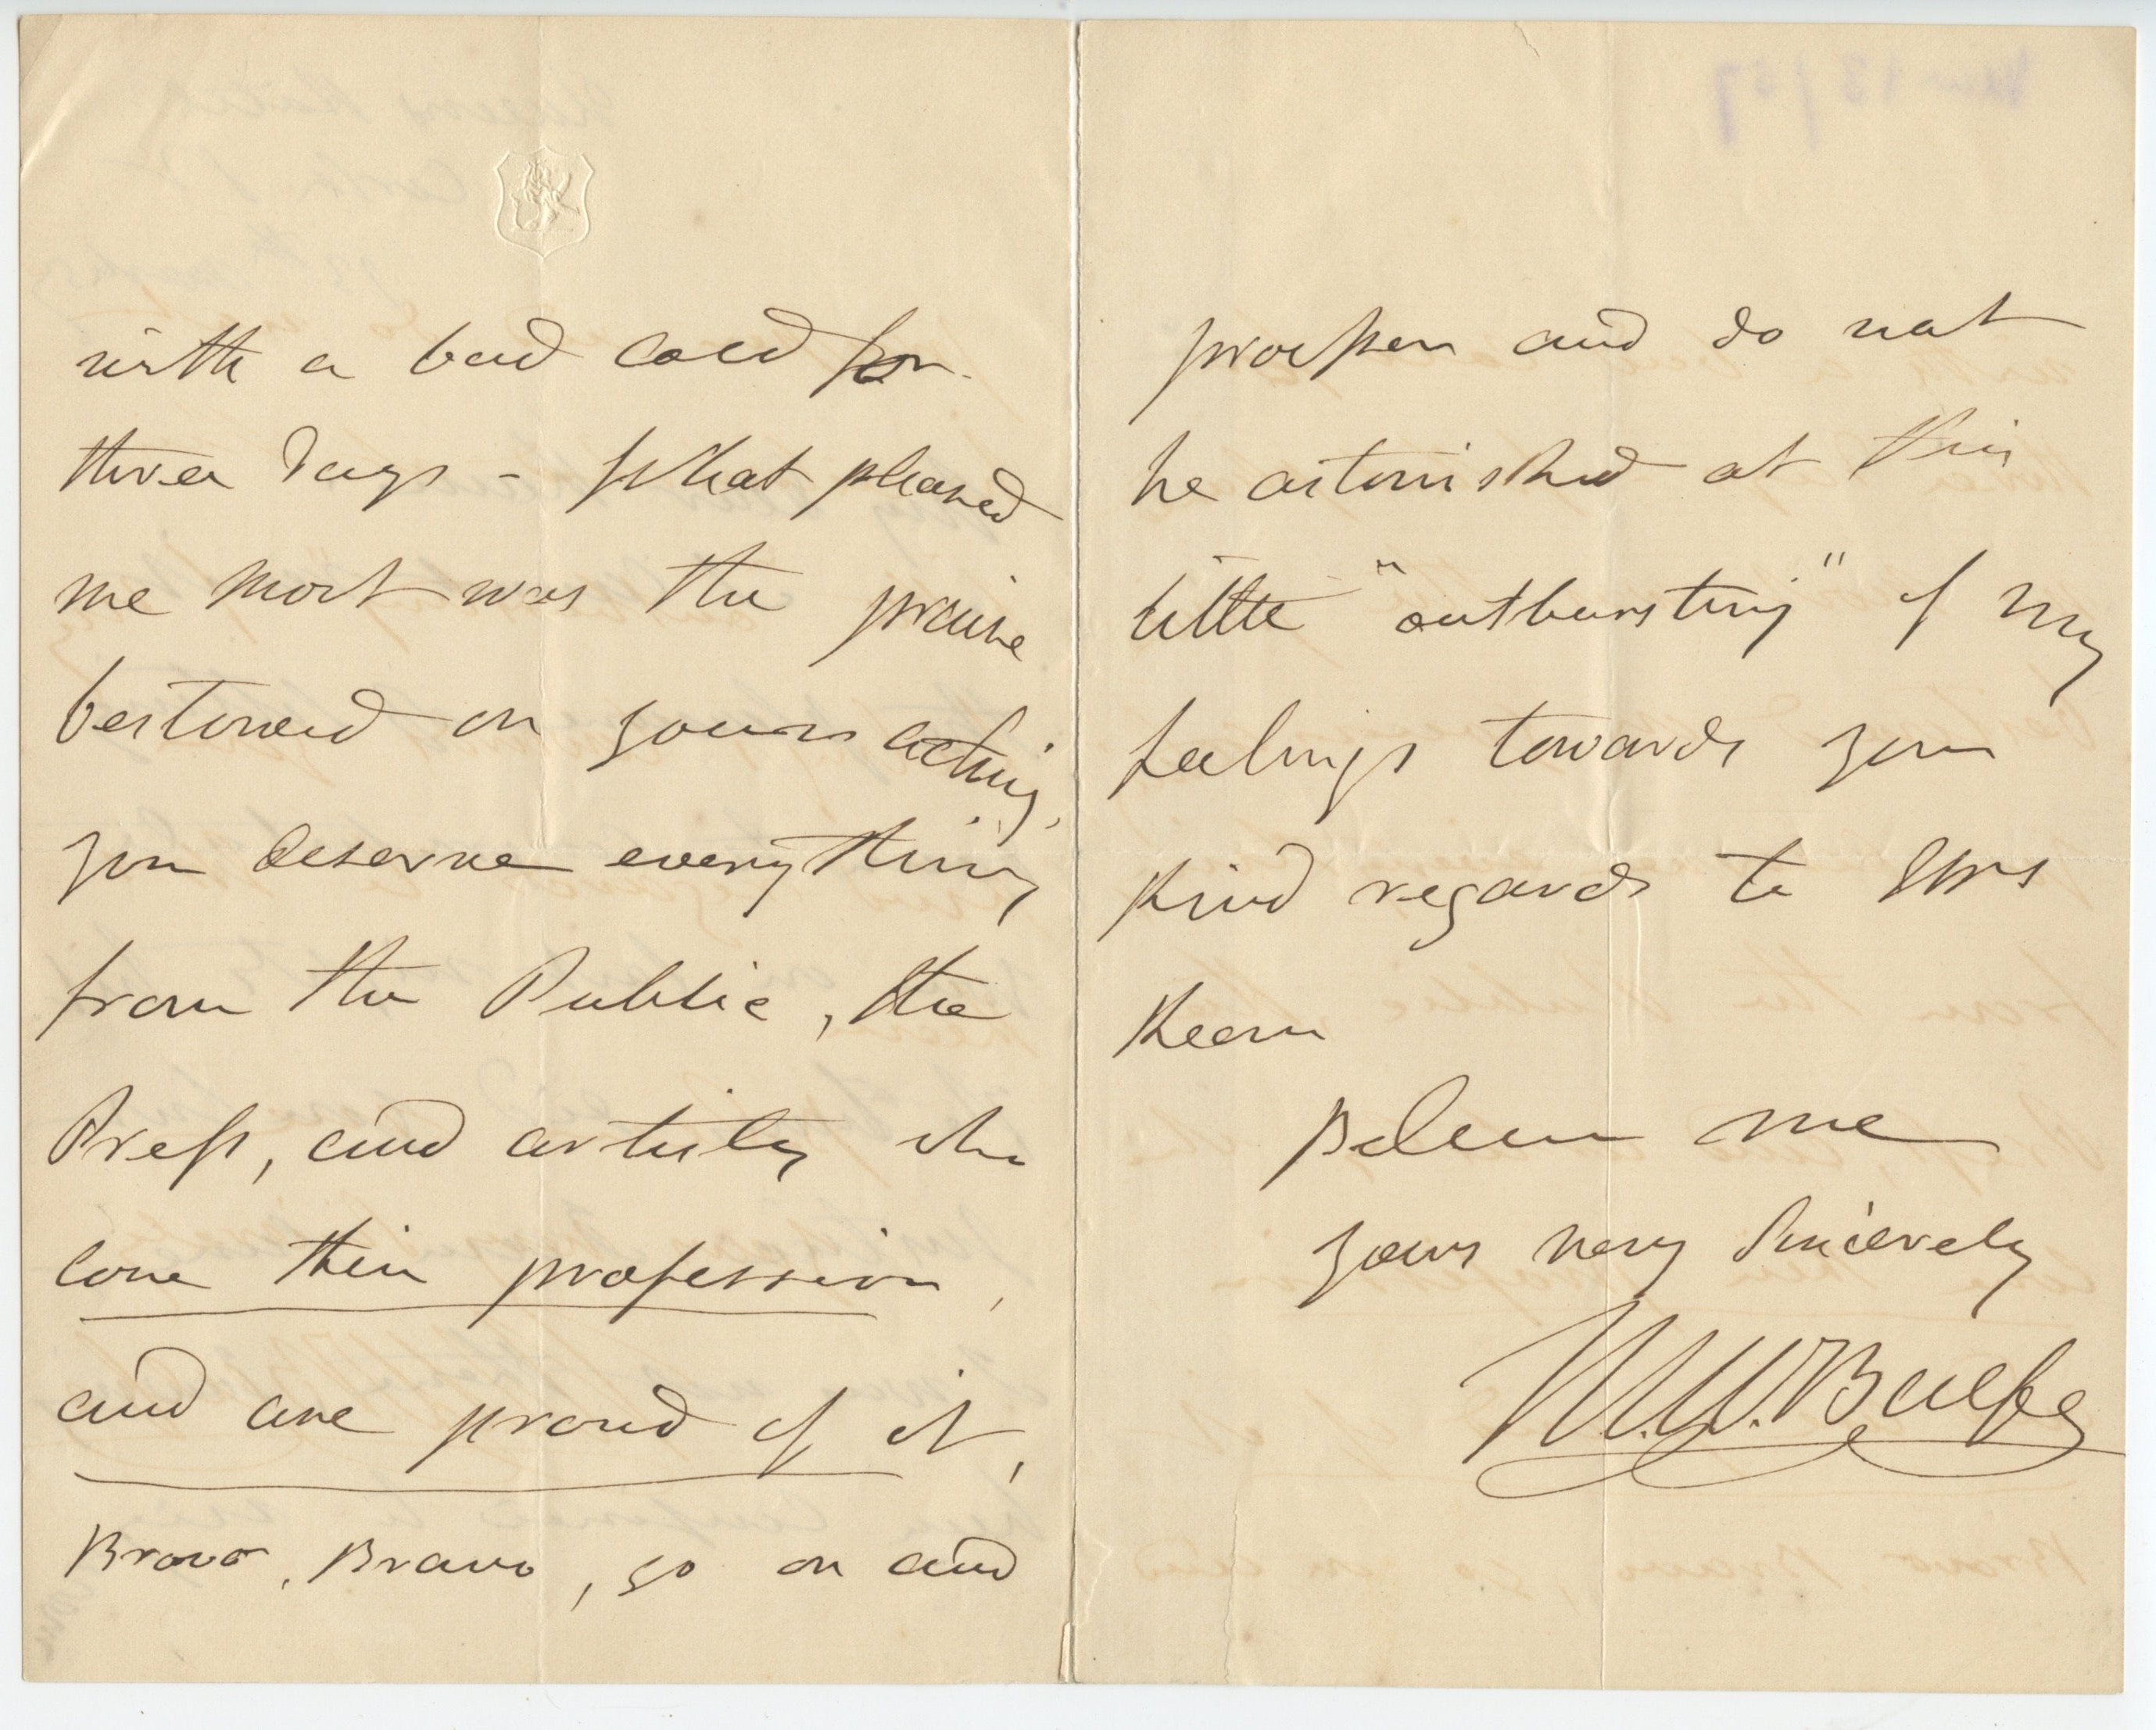 with a bad cold for
three days - What pleased
me most was the praise
bestowed on your acting,
you deserve everything
from the Public, the
Press, and artists, who
love their profession,
and are proud of it,
Bravo, Bravo, go on and
prosper and do not
be astonished at this
little "outbursting" of my
feelings towards you
Kind regards to Mrs
Kean
Believe me
yours very Sincerely
M.W. Balfe